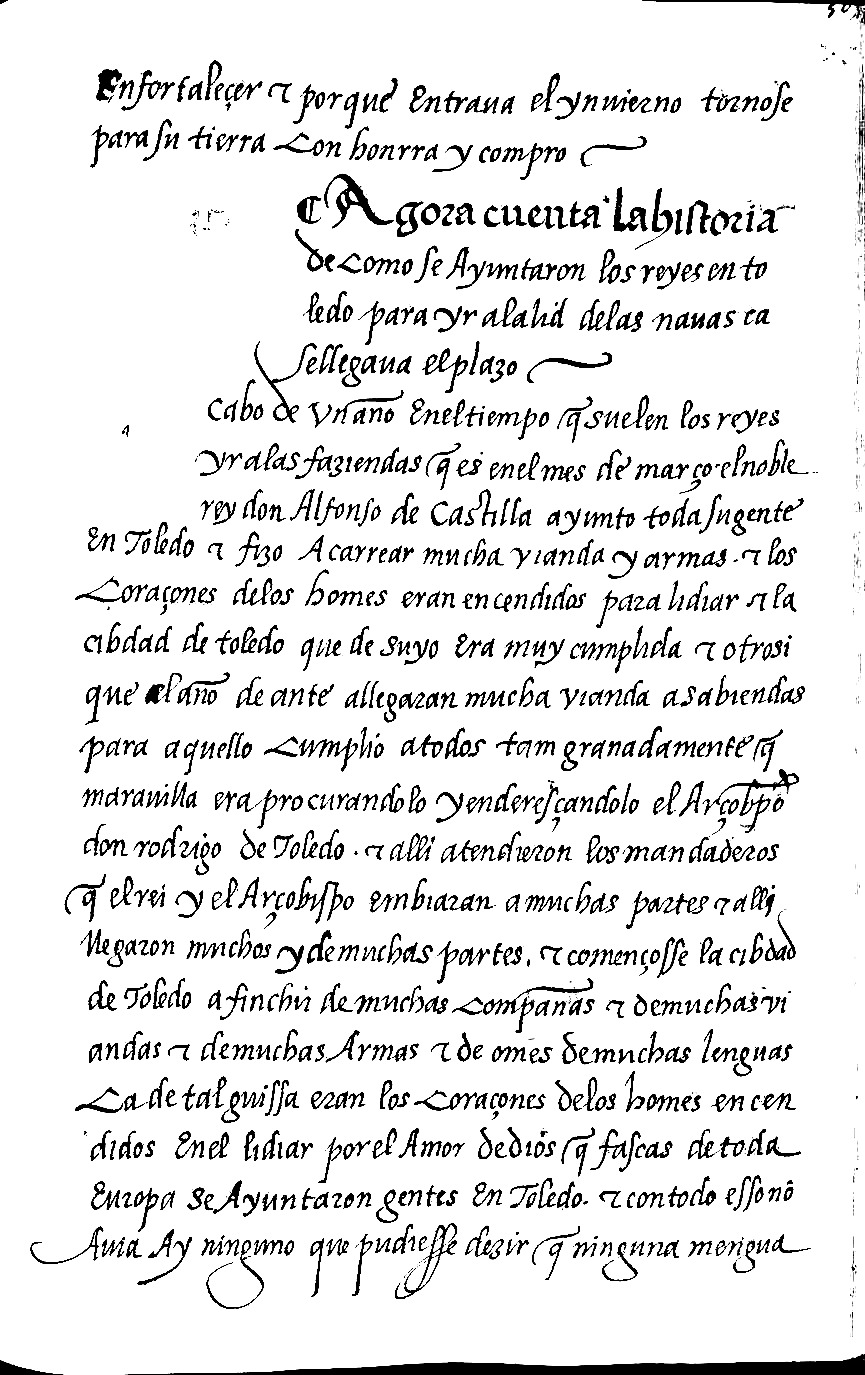 Enfortaleçer ⁊ porque Entraua el ynuierno tornose
para su tierra Con honrra y compro
¶ Agora cuenta la historia
de Como se Ayuntaron los reyes en to
ledo para yr a la lid de las nauas ca
se llegaua el plazo
Cabo de Vn año En el tiempo q̃ suelen los reyes
yr a las faziendas q̃ es en el mes de março. el noble
rey don Alfonso de Castilla ayunto toda su gente
En Toledo ⁊ fizo Acarrear mucha vianda y armas. ⁊ los
Coraçones de los homes eran encendidos para lidiar ⁊ la
cibdad de toledo que de suyo Era muy cumplida ⁊ otrosi
que el año de ante allegaran mucha vianda a sabiendas
para aquello Cumplio a todos tam granadamente q̃
marauilla era procurandolo y enderesçandolo el Arçobp̃o
don rodrigo de Toledo. ⁊ alli atendieron los mandaderos
q̃ el rei y el Arçobispo embiaran a muchas partes ⁊ alli
llegaron muchos y de muchas partes. ⁊ començosse la cibdad
de Toledo a finchir de muchas Compañas ⁊ de muchas vi
andas ⁊ de muchas Armas ⁊ de omes de muchas lenguas
Ca de tal guissa eran los Coraçones de los homes encen
didos En el lidiar por el Amor de diōs q̃ fascas de toda
Europa se Ayuntaron gentes En Toledo. ⁊ con todo esso nō
Auia Ay ninguno que pudiesse dezir q̃ ninguna mengua